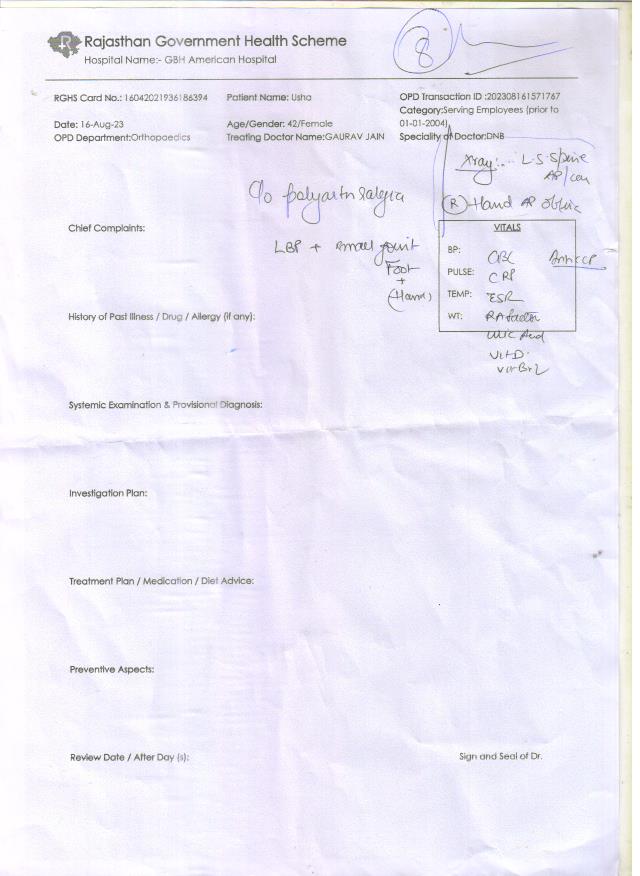 Rajasthan Government Health Scheme
Hospital Name:- GBH American Hospital
8
RGHS Card No.: 16042021936186394
Patient Name: Usha
OPD Transaction ID :202308161571767
Category:Serving Employees (prior to
01-01-2004)
Date: 16-Aug-23
Age/Gender: 42/Female
OPD Department:Orthopaedics
Treating Doctor Name:GAURAV JAIN
Speciality of Doctor:DNB
Xray:.. L-S-Spine
AP/Lan
R Hand AP oblic
C/o polyarthralgia
Chief Complaints:
LBP + small joint
Foot
+
(Hand)
VITALS
BP:
PULSE:
TEMP:
WT:
CBC
Anti CCP
CRP
ESR
RA factor
uric Acid
Vit-D.
Vit-B12
History of Past Illness / Drug / Allergy (if any):
Systemic Examination & Provisional Diagnosis:
Investigation Plan:
Treatment Plan / Medication / Diet Advice:
Preventive Aspects:
Review Date / After Day (s):
Sign and Seal of Dr.